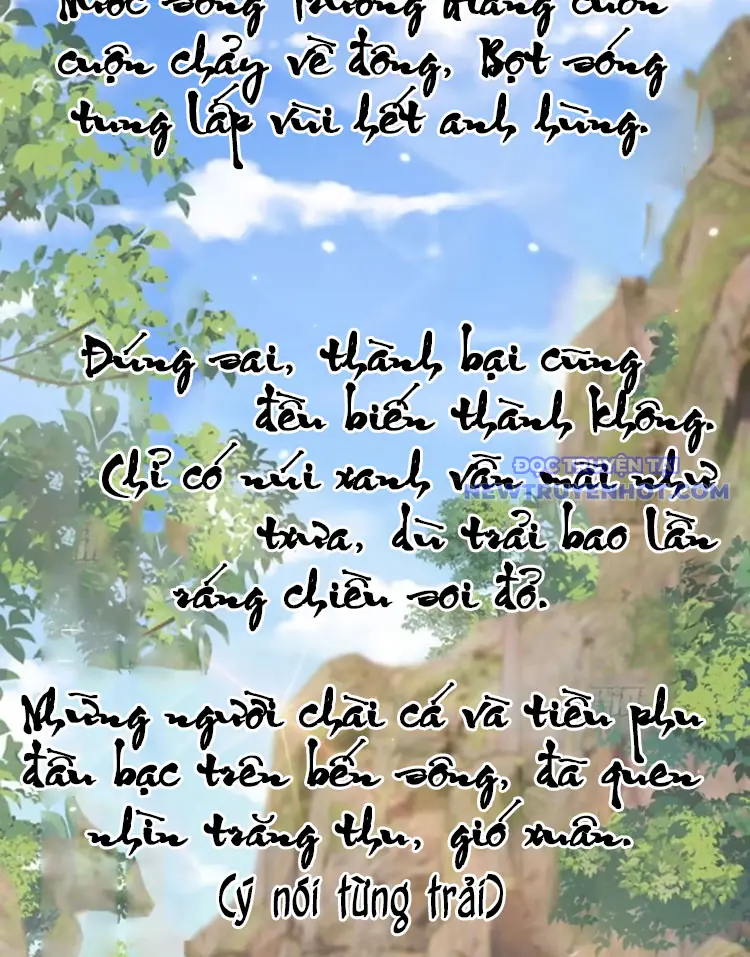 Nước sông Trường Giang cuồn
cuộn chảy về đông, Bọt sóng
tung lấp vùi hết anh hùng.
Đúng sai, thành bại cũng
đều biến thành không.
Chỉ có núi xanh vẫn mãi như
ĐỌC TRUYỆN TẠI
NEWTRUYENHOT.COM
xưa, dù trải bao lần
ráng chiều soi đỏ.
Những người chài cá và tiều phu
đầu bạc trên bến sông, đã quen
nhìn trăng thu, gió xuân.
(ý nói từng trải)